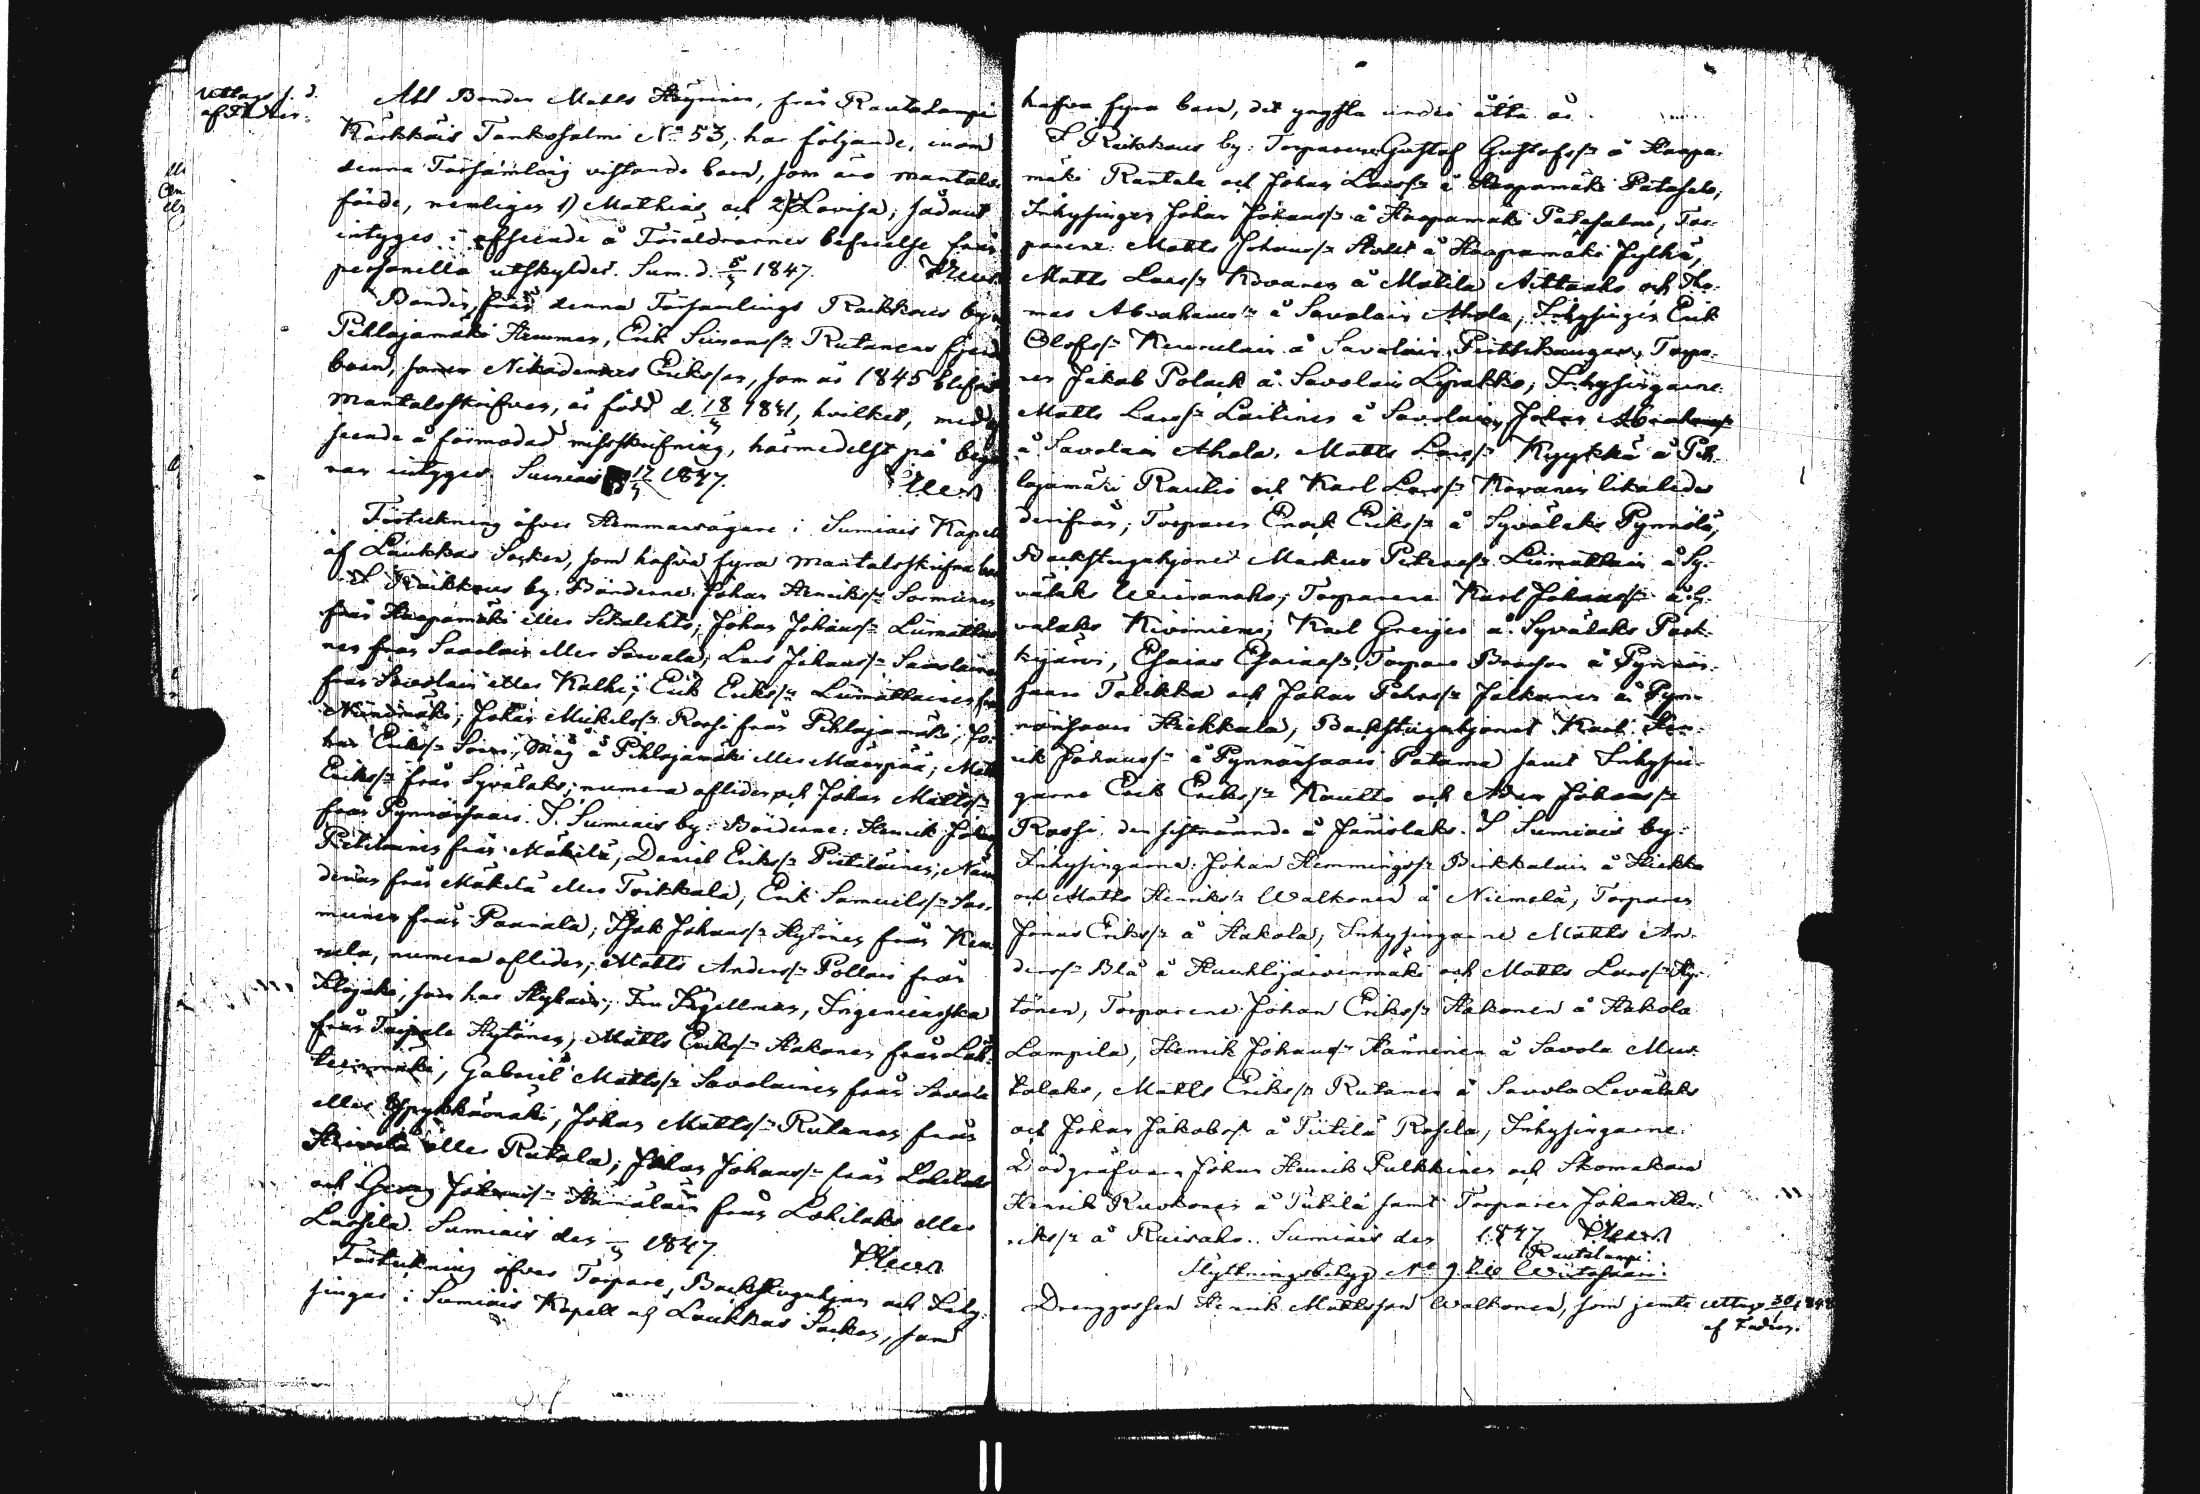 Uttag s. d.
af
Att Bonden Matts Häyrinen, från Rautalampi
Kärkkäis Tankosalmi No 53, har följande, inom
denna Församling vistande barn, som äro mantals-
förde, nemligen 1) Mathias, och 2) Lovisa; sådant
intyges i afseende å Föräldrarnes befrielse från
personella utskylder. Sum. d. 5/4 1847.
Bonden, från denna Församlings Raikkaus by
Pihlajamäki Hemman, Erik Simonss:n Rutanens fjerde
barn, sonen Nikodemus Eriksson, som år 1845 blifvit
mantalsskrifven, är född d. 18/4 1841, hvilket, med af-
seende å förmodad misskrifning, härmedelst på begä-
ran intyges. Sumiais 12/4 1847.
Förteckning öfver Hemmansägare i Sumiais Kapell
af Laukkas Socken, som hafva fyra mantalsskrifna barn
I Raikkaus by: Bönderne: Johan Henrikss:n Sorminen
från Haapamäki eller Sikalehto; Johan Johanss:n Limattai-
nen från Savolais eller Savala; Lars Johanss:n Savolainen
från Savolais eller Kalhi; Erik Erikss:n Limattainen från
Niinimäki; Johan Mickelss:n Rossi från Pihlajamäki; Jo-
han Erikss:n Soini, Måg å Pihlajamäki eller Määrpää; Matts
Erikss:n från Syvälaks, numera afliden och Johan Mattss:n
från Pynnönsaari. I Sumiais by: Bönderne: Henrik Johanss:n
Pietiläinen från Mäkilä, Daniel Erikss:n Pietiläinen, Näm-
deman från Mäkelä eller Toikkala; Erik Samuelss:n Sor-
munen från Paanala; Isak Johanss:n Hytönen från
nela, numera afliden; Matts Anderss:n Pollari från
som har Fru Kjellman, Ingenieurska
från Taipale Hytönen; Matts Erikss:n Hakonen från
Gabriel Mattss:n Savolainen från Savola
eller Johan Mattss:n Rutanen från
eller Rutala; Johan Johanss:n från Lohilaks
och Georg Johanss:n Hämäläin från Lohilaks eller
Laurila. Sumiais den /4 1847.
Förteckning öfver Torpare, Backstuguhjon och Inhy-
singar i Sumiais Kapell af Laukkas Socken, som
hafva fyra barn, det yngsta under åtta år.
I Raikkaus by: Torparene Gustaf Gustafss:n å Haapa-
mäki Rantala och Johan Larss:n å Haapamäki Patasalo;
Inhysingen Johan Johanss:n å Haapamäki Patasalmi, Tor-
parene: Matts Johanss:n å Haapamäki Jylhä,
Matts Larss:n Kovanen å Matila Aittaaho och Tho-
mas Abrahamss:n å Savolais Ahola, Inhysingen Erik
Olofss:n å Savolais Torpa-
ren Jakob Polack å Savolais Lipakko; Inhysingarne:
Matts Larss:n Laitinen å Savolais, Johan Abrahamss:n
å Savolais Ahola. Matts Larss:n Kyykkä å Pih-
lajamäki Rautio och Karl Larss:n Kovanen likaledes
derifrån; Torparen Enock Erikss:n å Syvälaks Pynnölä,
Backstuguhjonet Markus Peterss:n Limattain å Sy-
välaks Torparene Karl Johanss:n å Sy-
välaks Kiviniemi; Karl Greijer å Syvälaks
Esaias Esaiass:n, Torpare å Pynnön-
saari Tolikka och Johan Pehrss:n Jalkanen å Pyn-
nönsaari Hiekkala, Backstuguhjonet Karl Hen-
rik Johanss:n å Pynnönsaari Patama samt Inhysin-
garne Erik Erikss:n Kautto och Adam Johanss:n
Rossi, den sistnämnde å Jänislaks. I Sumiais by:
Inhysingarne: Johan Hemmingss:n Pirkkalain å Hiekka
och Matts Henrikss:n Walkonen å Niemelä, Torparen
Jonas Erikss:n å Hakola, Inhysingarne Matts An-
derss:n Blå å och Matts Larss:n Hy-
tönen, Torparene Johan Erikss:n Hakonen å Hakola
Lampila, Henrik Johanss:n Hänninen å Savola Mus-
talaks, Matts Erikss:n Rutanen å Savola Levälaks
och Johan Jakobss:n å Tiitilä Rasila, Inhysingarne:
Dödgräfvaren Johan Henrik Pulkkinen och Skomakaren
Henrik Ruokonen å Tiitilä samt Torparen Johan Hen-
rikss:n å Ruisaho. Sumiais den 1847.
Rautalampi
Flyttningsbetyg No 9 till Wiitasaari:
Drenggossen Henrik Mattsson Walkonen, som jemte
Uttag 30 1848
af Fadren.